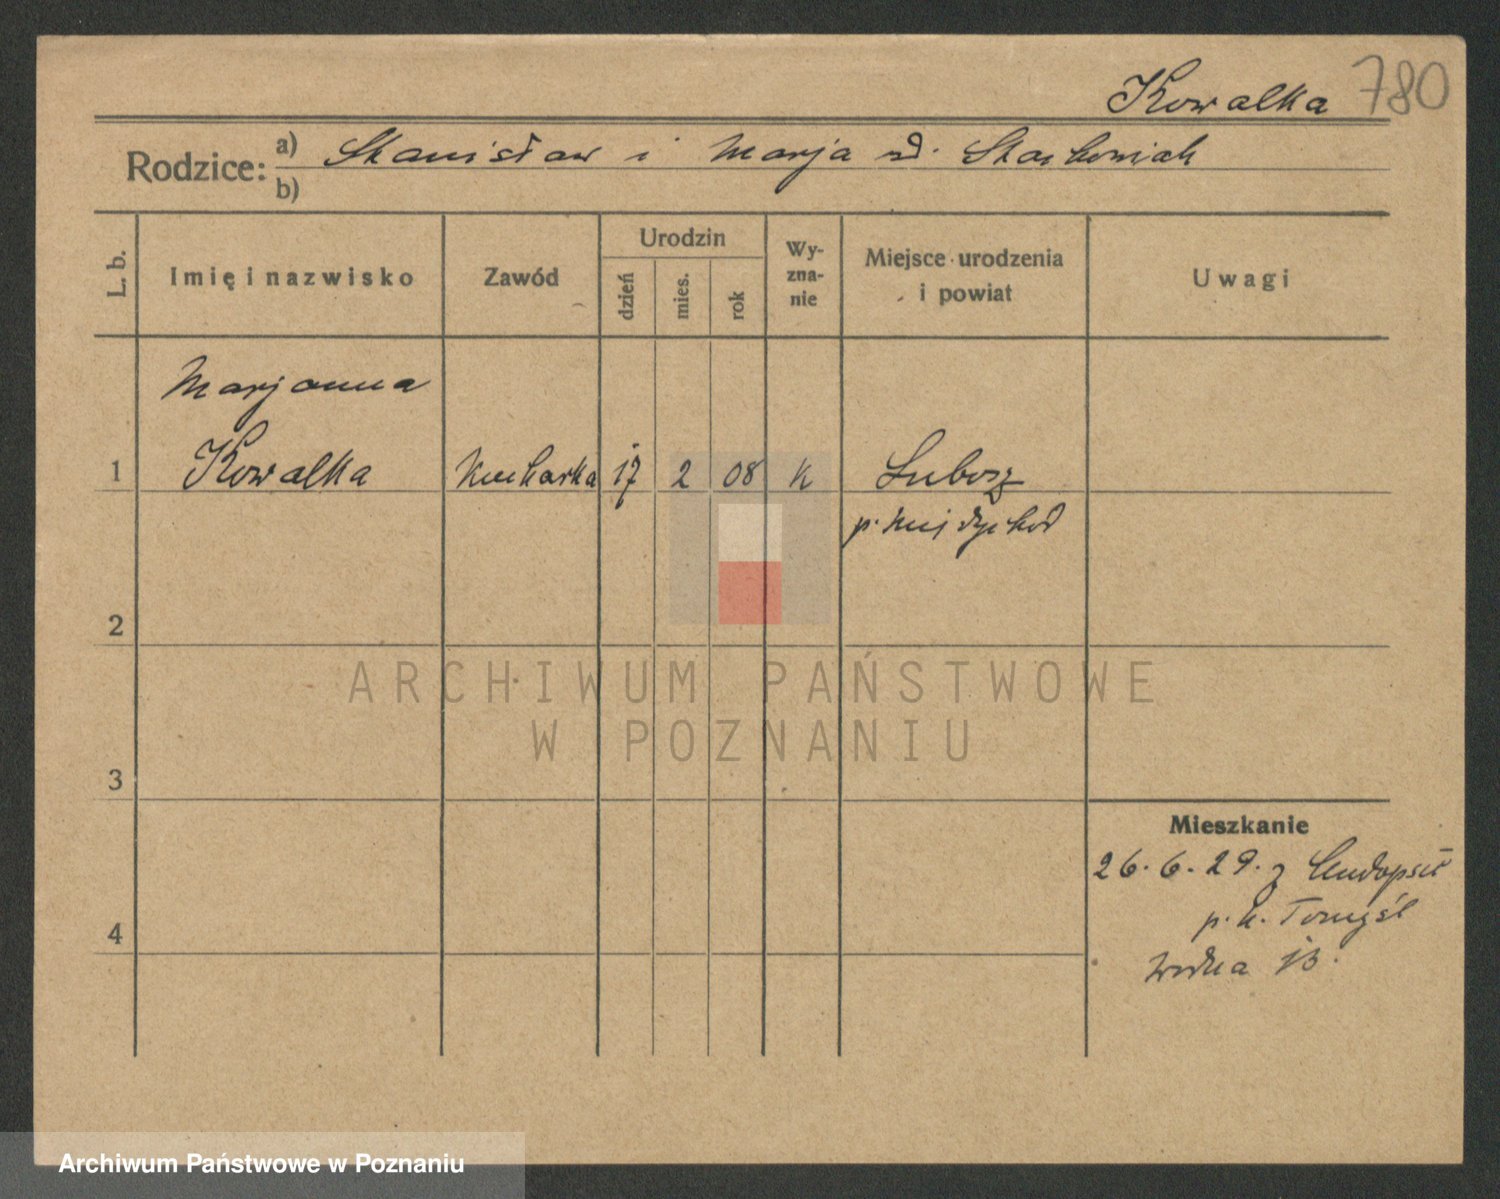 Kowalka 780
Rodzice: a) Stanisław i Marja ud.
b)
L. b.
Imię i nazwisko
Zawód
Urodzin
dzień
mies.
rok
Wy-
zna-
nie
Miejsce urodzenia
i powiat
Uwagi
Marjanna
1 Kowalka Kucharka 17 2 08 K Lubosz
p. Międzychod
2
3
ARCHIWUM PAŃSTWOWE
W POZNANIU
Mieszkanie
26. 6. 29. z
4 p. n. Tomyśl
Wodna 13.
Archiwum Państwowe w Poznaniu